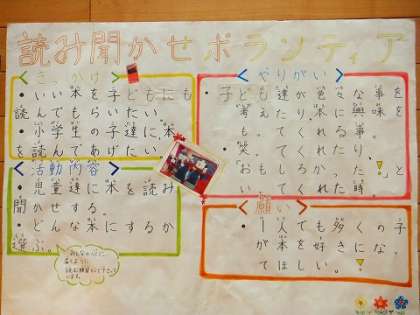 読み聞かせボランティア
きっかけ
・いい本を子どもにも
読んでもらいたい
・小学生の子達に本
を読んであげたい
活動内容
・児童達に本を読み
聞かせする。
・どんな本にするか
選ぶ。
やりがい
・子ども達が色々な事を
考えたり、本に興味を
もってくれる
・笑ってくれたり、
「おもしろかった!」と
いってくれた時。
願い
・一人でも多くの子
が本を好きになっ
てほしい。!